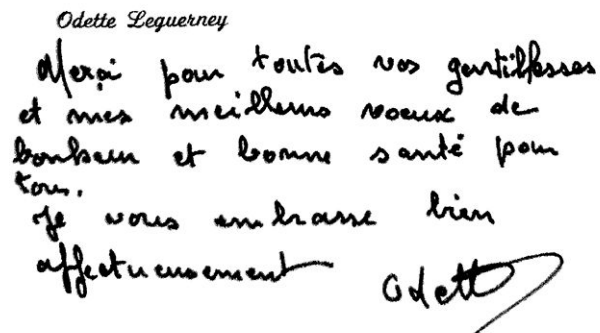 Odette Leguerney
Merçi pour toutes vos gentillesses
et mes meilleurs voeux de
bonheur et bonne santé pour
tous.
Je vous embrasse bien
affectueusement
Odette